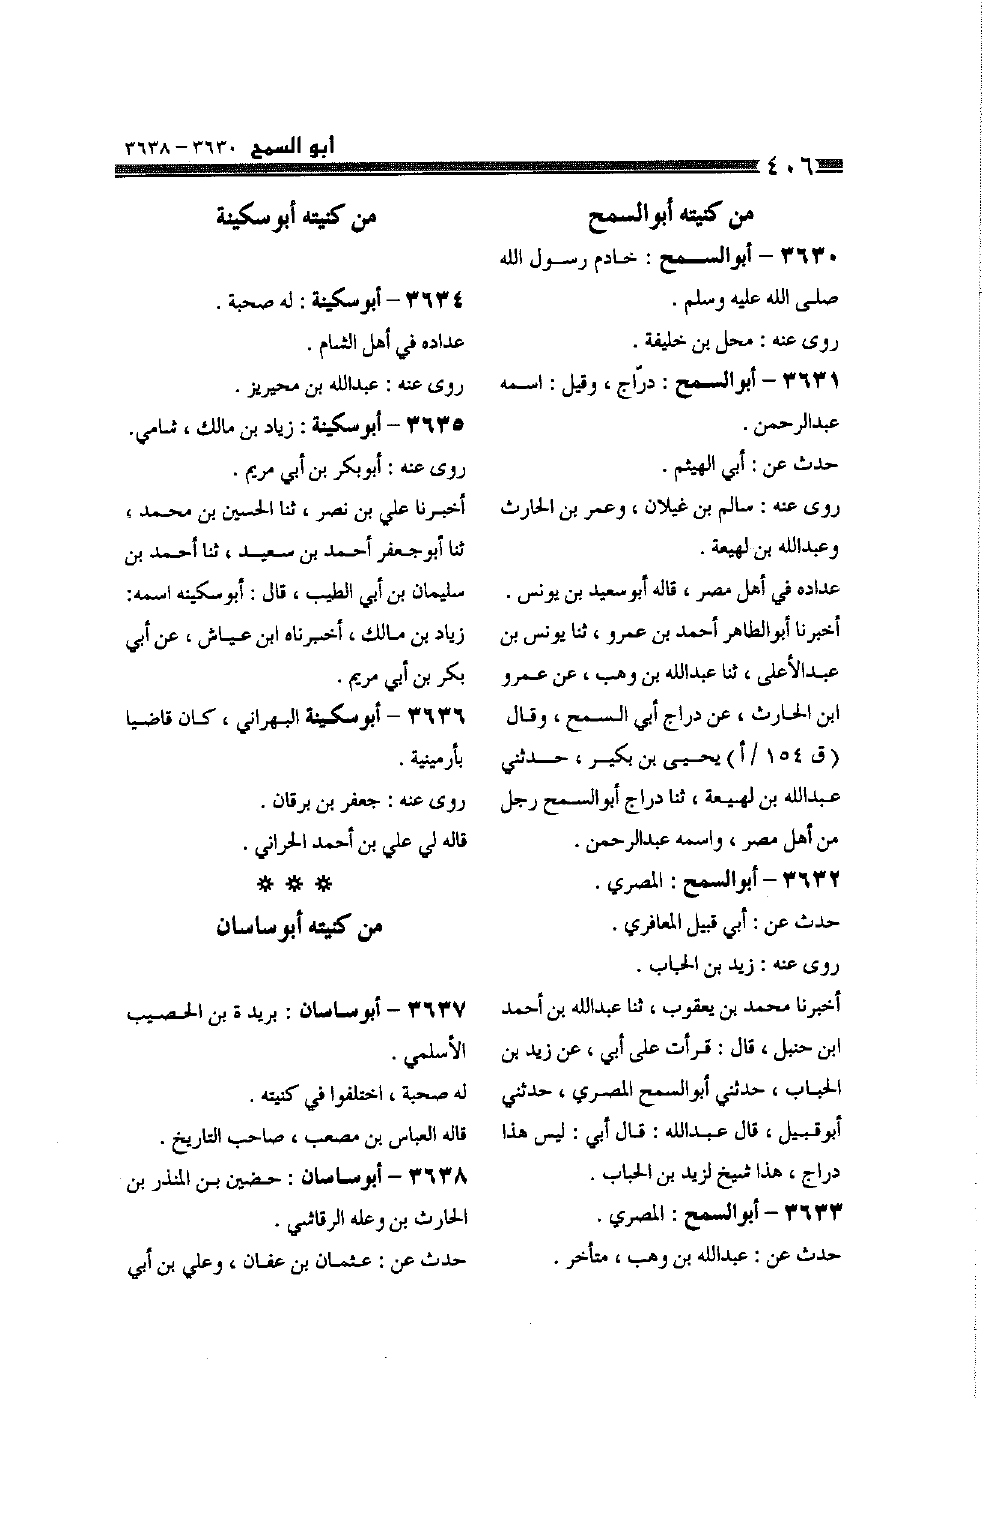 أبو السمح ٣٦٣٠ – ٣٦٣٨
٤٠٦
من كنيته أبو السمح
٣٦٣٠ – أبوالسمح : خادم رسول الله
صلى الله عليه وسلم .
روى عنه : محل بن خليفة .
٣٦٣١ – أبوالسمح : درّاج ، وقيل : اسمه
عبدالرحمن .
حدث عن : أبي الهيثم .
روى عنه : سالم بن غيلان ، وعمر بن الحارث
وعبدالله بن لهيعة .
عداده في أهل مصر ، قاله أبو سعيد بن يونس .
أخبرنا أبوالطاهر أحمد بن عمرو ، ثنا يونس بن
عبدالأعلى ، ثنا عبدالله بن وهب ، عن عمرو
ابن الحارث ، عن دراج أبي السمح ، وقال
(ق ١٥٤ /أ) يحيى بن بكير ، حدثني
عبدالله بن لهيعة ، ثنا دراج أبوالسمح رجل
من أهل مصر ، واسمه عبدالرحمن .
٣٦٣٢ – أبوالسمح : المصري .
حدث عن : أبي قبيل المعافري .
روى عنه : زيد بن الحباب .
أخبرنا محمد بن يعقوب ، ثنا عبدالله بن أحمد
ابن حنبل ، قال : قرأت على أبي ، عن زيد بن
الحباب ، حدثني أبوالسمح المصري ، حدثني
أبوقبيل ، قال عبدالله : قال أبي : ليس هذا
دراج ، هذا شيخ لزيد بن الحباب .
٣٦٣٣ – أبوالسمح : المصري .
حدث عن : عبدالله بن وهب ، متأخر .
من كنيته أبو سكينة
٣٦٣٤ – أبو سكينة : له صحبة .
عداده في أهل الشام .
روى عنه : عبدالله بن محيريز .
٣٦٣٥ – أبو سكينة : زياد بن مالك ، شامي.
روى عنه : أبوبكر بن أبي مريم .
أخبرنا علي بن نصر ، ثنا الحسين بن محمد ،
ثنا أبوجعفر أحمد بن سعيد ، ثنا أحمد بن
سليمان بن أبي الطيب ، قال : أبو سكينه اسمه:
زياد بن مالك ، أخبرناه ابن عياش ، عن أبي
بكر بن أبي مريم .
٣٦٣٦ – أبو سكينة البهراني ، كان قاضيا
بأرمينية .
روى عنه : جعفر بن برقان .
قاله لي علي بن أحمد الحراني .
* * *
من كنيته أبو ساسان
٣٦٣٧ – أبو ساسان : بريدة بن الحصيب
الأسلمي .
له صحبة ، اختلفوا في كنيته .
قاله العباس بن مصعب ، صاحب التاريخ .
٣٦٣٨ – أبو ساسان : حضين بن المنذر بن
الحارث بن وعله الرقاشي .
حدث عن : عثمان بن عفان ، وعلي بن أبي